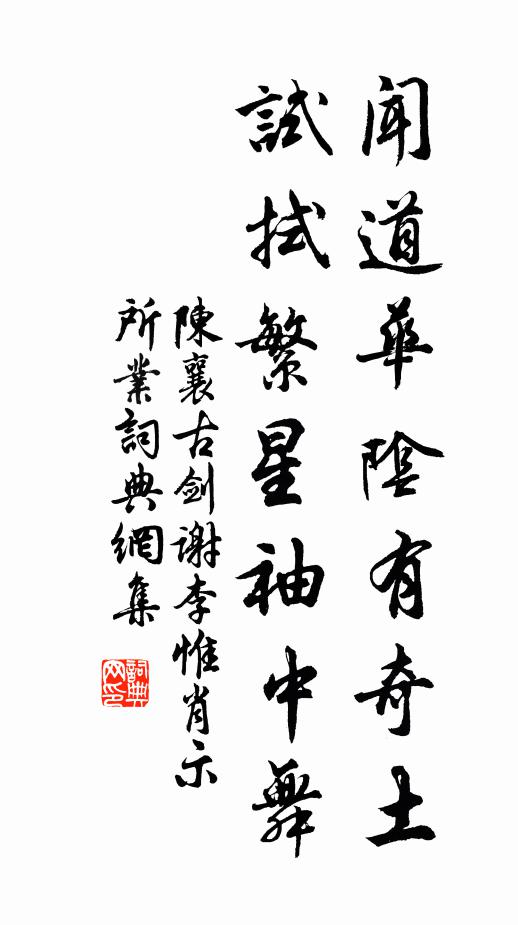 聞道華陰有奇土
試拭繁星袖中舞
陳襄古劍謝李惟肖示
所業詞典網集
詞典網印